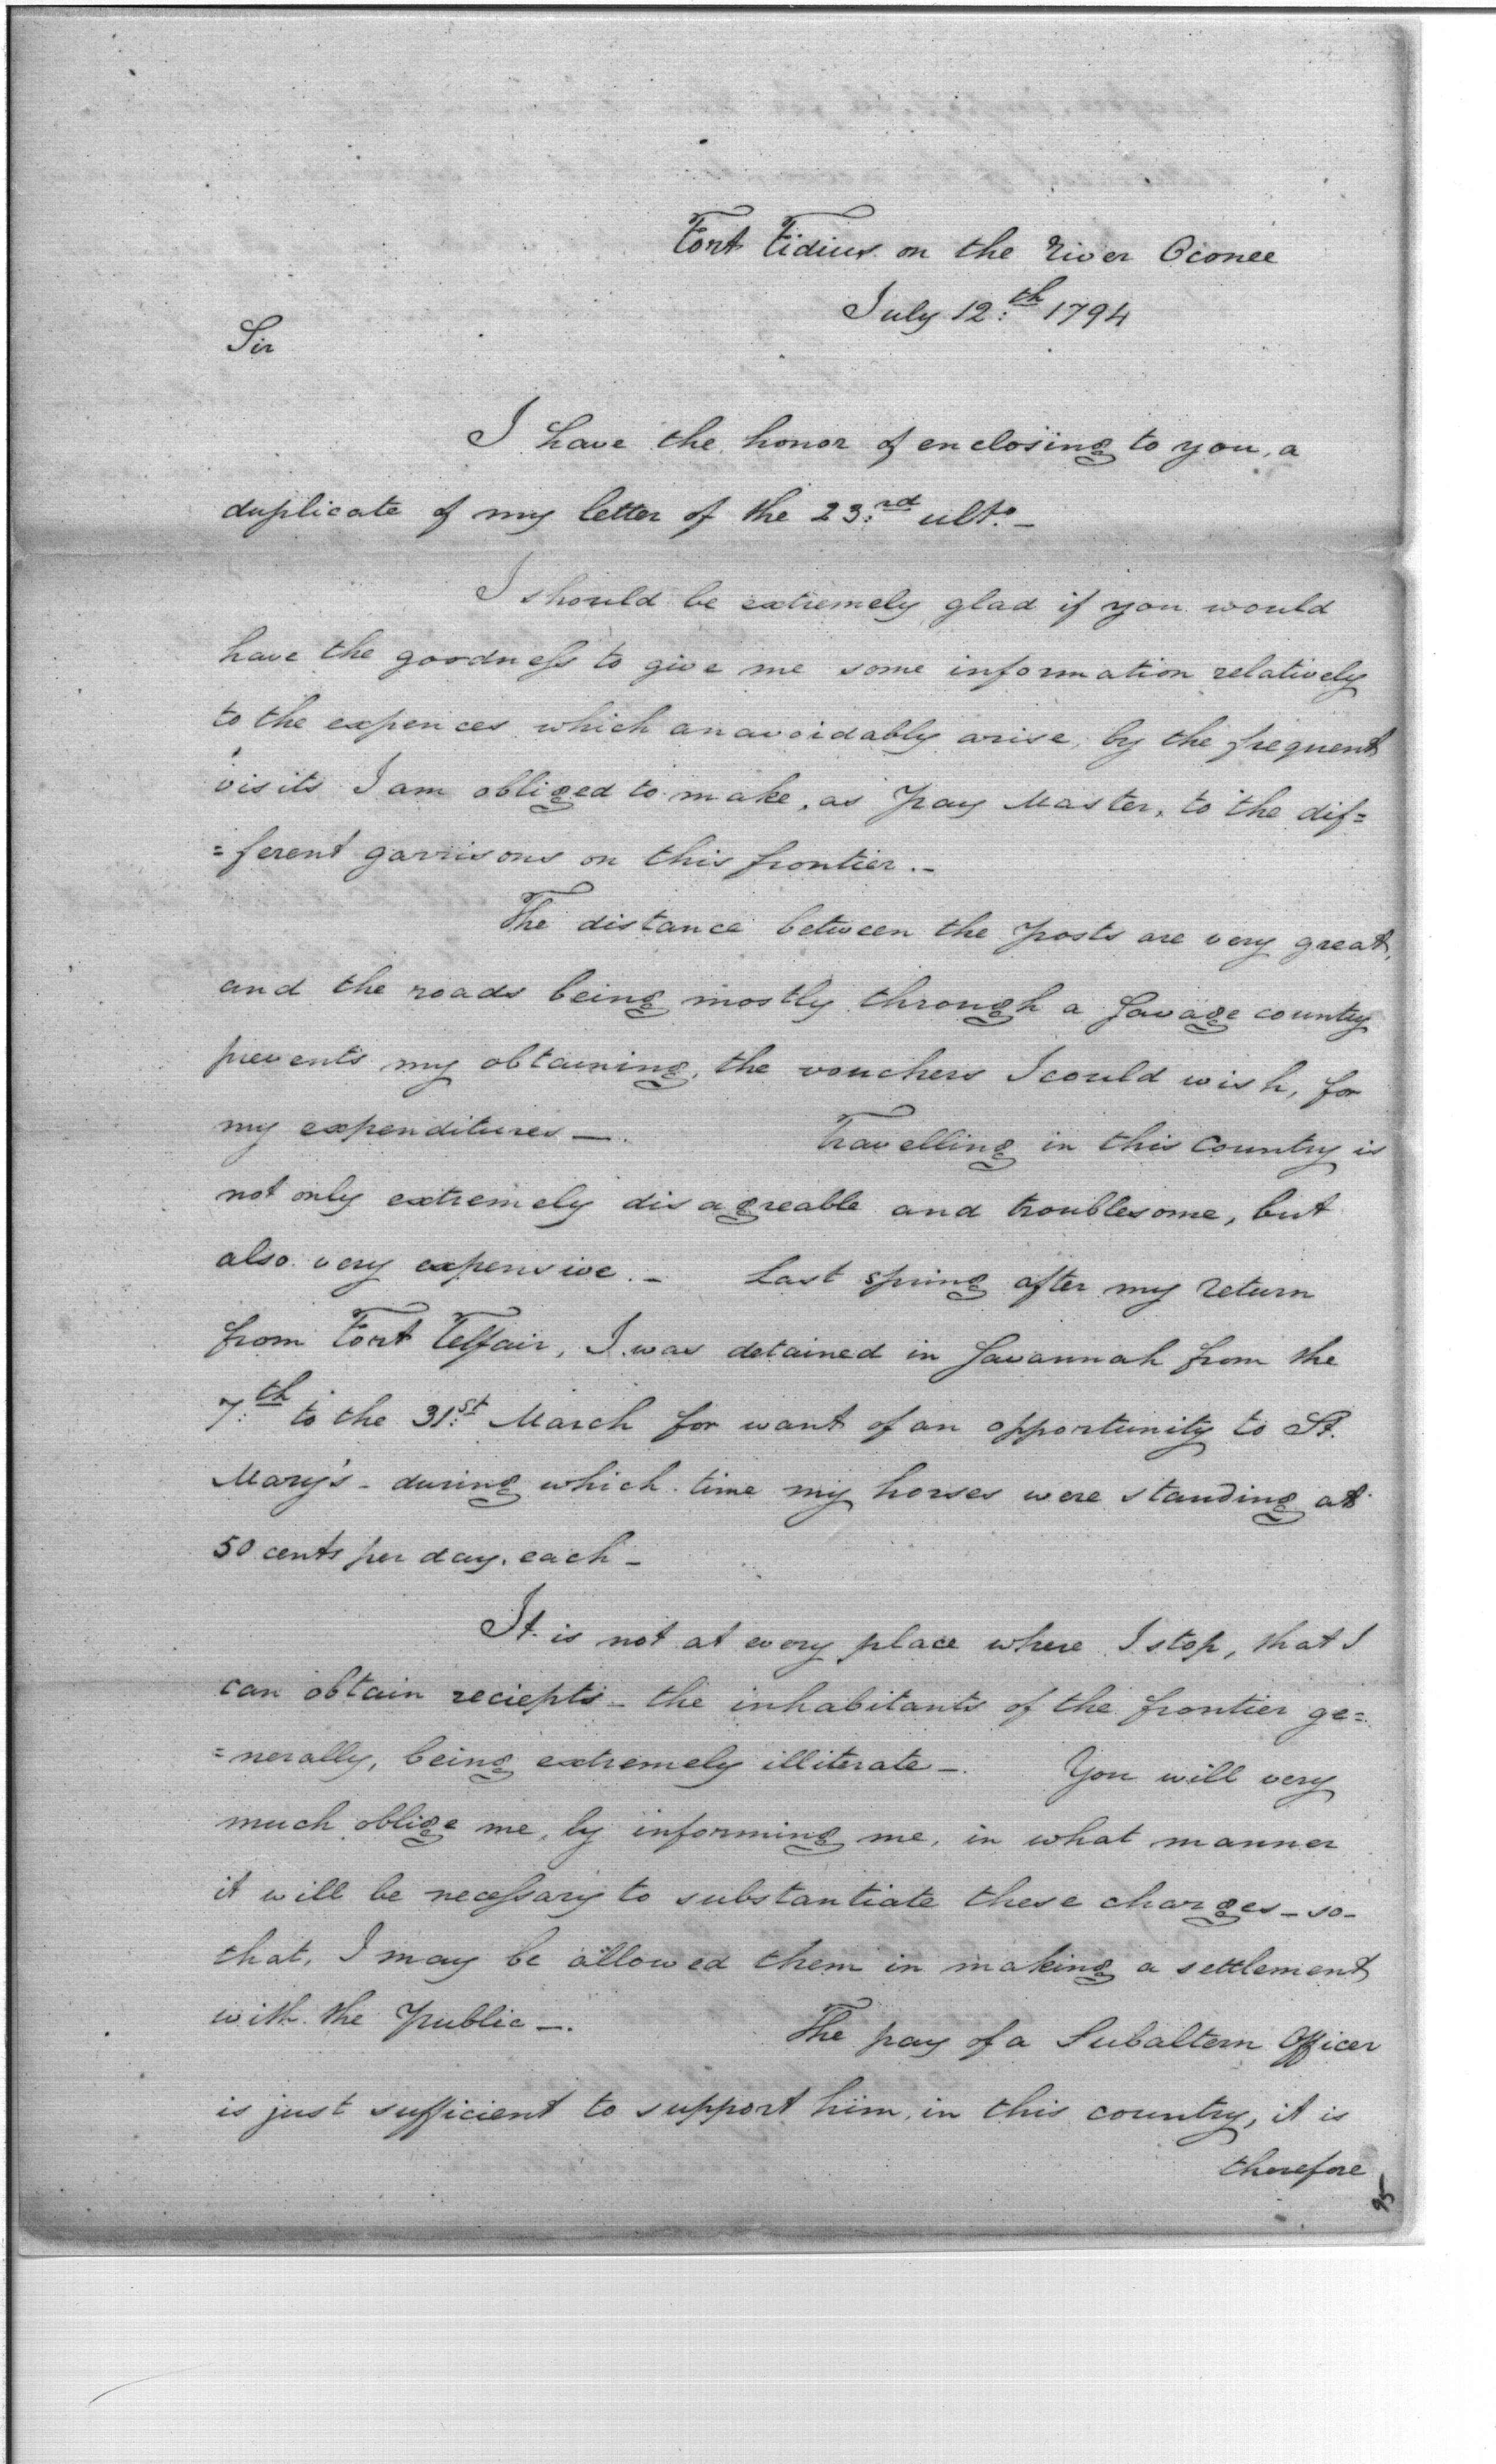 Fort Fidius on the River Oconee
July 12th 1794
Sir
I have the honor of enclosing to you, a
duplicate of my letter of the 23rd ulto. –
I should be extremely glad if you would
have the goodness to give me some information relatively
to the expences which unavoidably arise, by the frequent
visits I am obliged to make, as Pay Master, to the dif=
=ferent garrisons on this frontier. –
The distance between the Posts are very great,
and the roads being mostly through a Savage country
prevents my obtaining, the vouchers I could wish, for
my expenditures –. Travelling in this Country is
not only extremely disagreable and troublesome, but
also very expensive. – Last spring after my return
from Fort Telfair, I was detained in Savannah from the
7th to the 31st March for want of an opportunity to St.
Mary's – during which time my horses were standing at
50 cents per day, each –
It is not at every place where I stop, that I
can obtain reciepts – the inhabitants of the frontier ge=
=nerally, being extremely illiterate –. You will very
much oblige me, by informing me, in what manner
it will be necessary to substantiate these charges – so –
that, I may be allowed them in making a settlement
with the Public –. The pay of a Subaltern Officer
is just sufficient to support him, in this country, it is
therefore
95